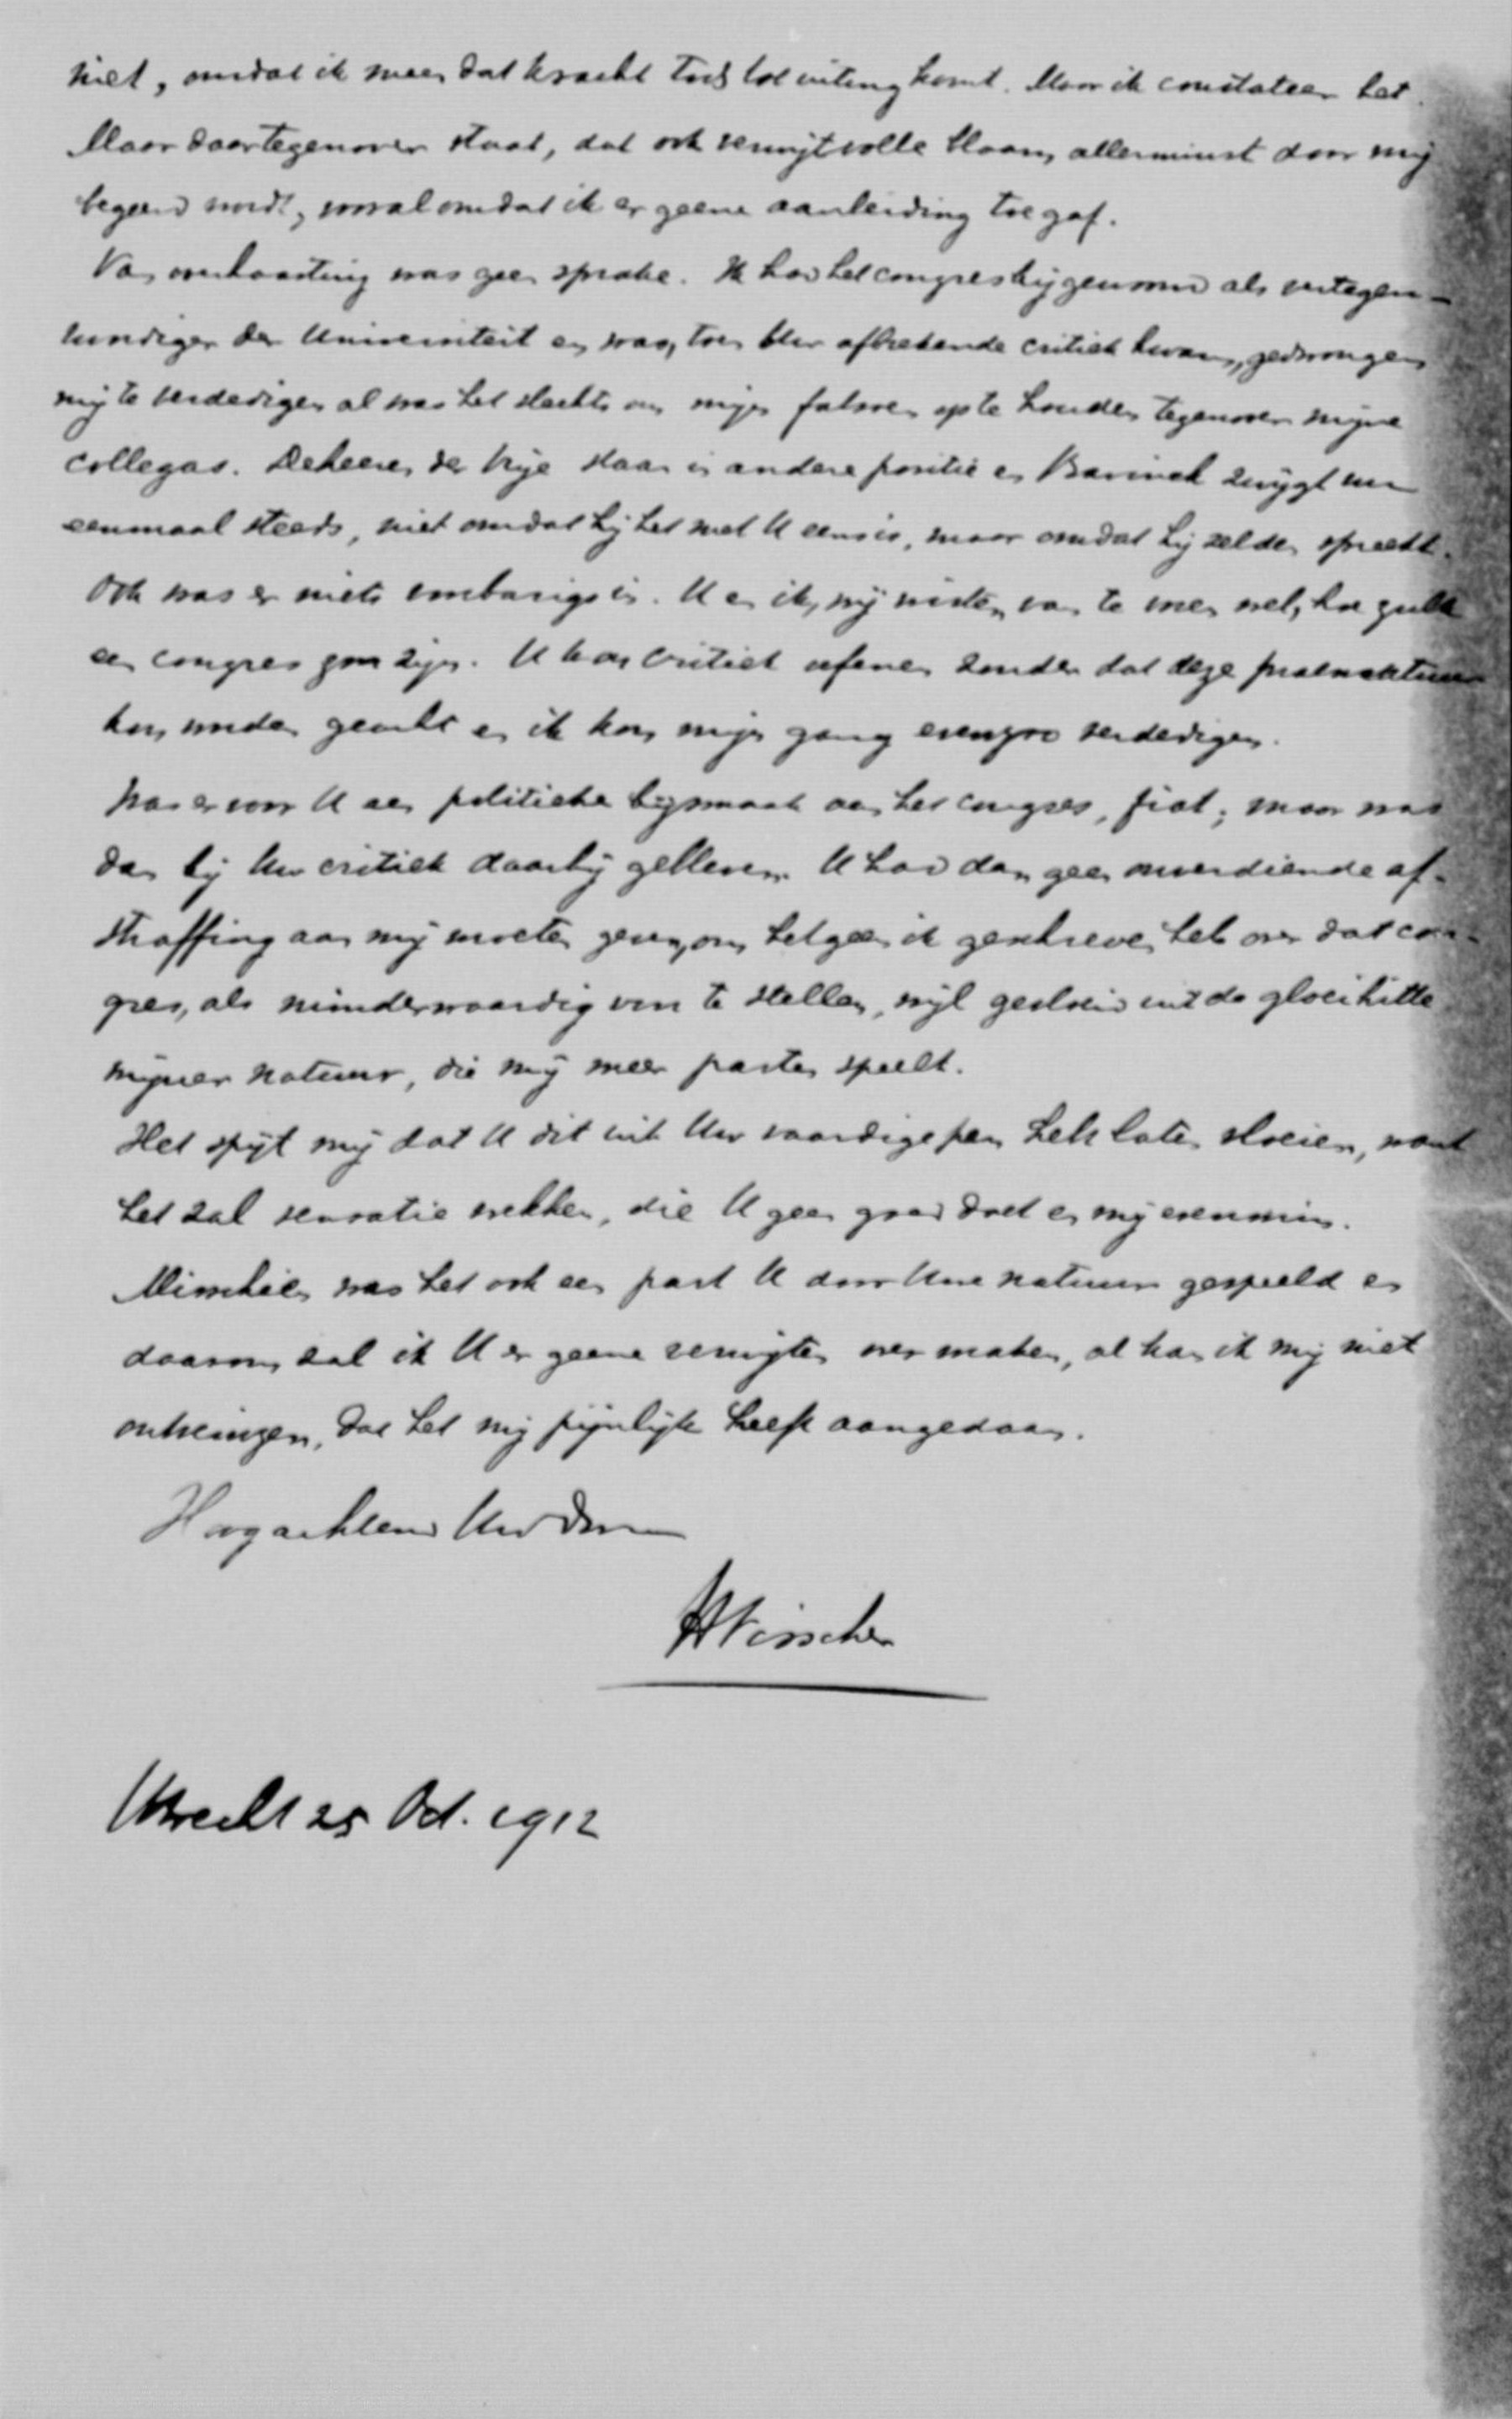 niet, omdat ik meen dat kracht toch tot uiting komt. Maar ik constateer het.
Maar daartegenover staat, dat ook venijtvolle blaam, allerminst door mij
begeerd wordt, vooral omdat ik er geene aanleiding toe gaf.
Van overhaasting was geen sprake. Ik had het congres bijgewoond als vertegen-
woordiger der Universiteit en was, toen Uw afbrekende critiek kwam, gedwongen
mij te verdedigen al was het slechts om mijn fatsoen op te houden tegenover mijne
collegas. De heeren der Vrije staan in andere positie en Bavinck zwijgt nu
eenmaal steeds, niet omdat hij het met U eens is, maar omdat hij zelden spreekt.
Ook was er niets onbarigs in. U en ik, wij wisten van te voren wel, hoe zulk
een congres zou zijn. U kon critiek oefenen zonder dat deze praematuur
kon worden geacht en ik kon mijn gang evengoed verdedigen.
Was er voor U een politieke bijsmaak aan het congres, fiat; maar was
dan bij Uw critiek daarbij gebleven. U had dan geen onverdiende af-
straffing aan mij moeten geven, om hetgeen ik geschreven heb over dat con-
gres, als minderwaardig voor te stellen, wijl gevloeid uit de gloeihitte
mijner natuur, die mij meer parten speelt.
Het spijt mij dat U dit uit Uw vaardige pen hebt laten vloeien, want
het zal sensatie wekken, die U geen goed doet en mij evenmin.
Misschien was het ook een part U door Uwe natuur gespeeld en
daarom zal ik U er geene verwijten over maken, al kan ik mij niet
ontveinzen, dat het mij pijnlijk heeft aangedaan.
Hoogachtend Uw Dr
HVisscher
Utrecht 25 Oct. 1912